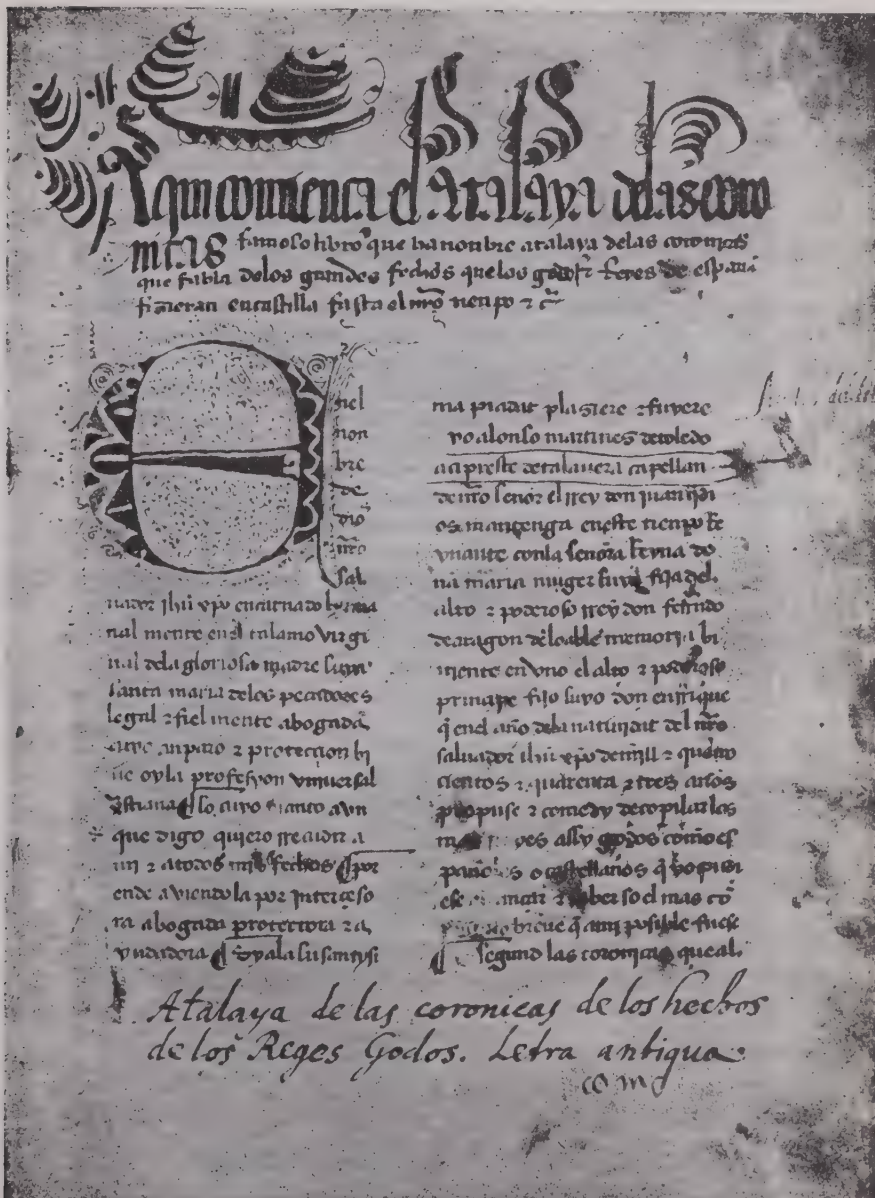 Aqui comiença el atalaya delas coro
nicas famoso libro que ha nonbre atalaya delas coronicas
que fabla delos grandes fechos quelos godos rreyes de españa
fizieran en castilla fasta el nr̃o tienpo
E
nel
non
bre
de
dios
nr̃o
sal
uador ihũ xp̃o encarnado
nal mente enel talamo virgi
nal dela gloriosa madre suya
santa maria delos pecadores
legal ⁊ fiel mente abogada
anparo ⁊ proteccion
la profesyon vniuersal
xp̃stiana lo cuyo
que digo quiero
⁊ atodos mis fechos por
ende auiendo la por interçeso
ra abogada protectora ⁊ a
yudadora sy ala su santysi
ma piadat plaziere ⁊ fuere
yo alonso martines detoledo
açipreste detalauera capellan
denr̃o señor el rrey don juan
os mantenga eneste tienpo rre
ynante conla señora rreyna do
ña maria muger suya fija del
alto ⁊ poderoso rrey don
dearagon deloable memoria bi
uiente en vno el alto ⁊ poderoso
prinçipe fijo suyo don enrrique
q̃ enel año dela natiuidat del nr̃o
saluador ihũ xp̃o demill ⁊ quatro
cientos ⁊ quarenta ⁊ tres años
propuse ⁊ comedy decopilar los
assy godos como es
pañoles o castellanos q̃ yo pudi
ese alcançar ⁊ saber so el mas cõ
breue q̃ ami posible fuese
segund las coronicas que al
Atalaya de las coronicas de los hechos
de los Reyes Godos. Letra antigua.